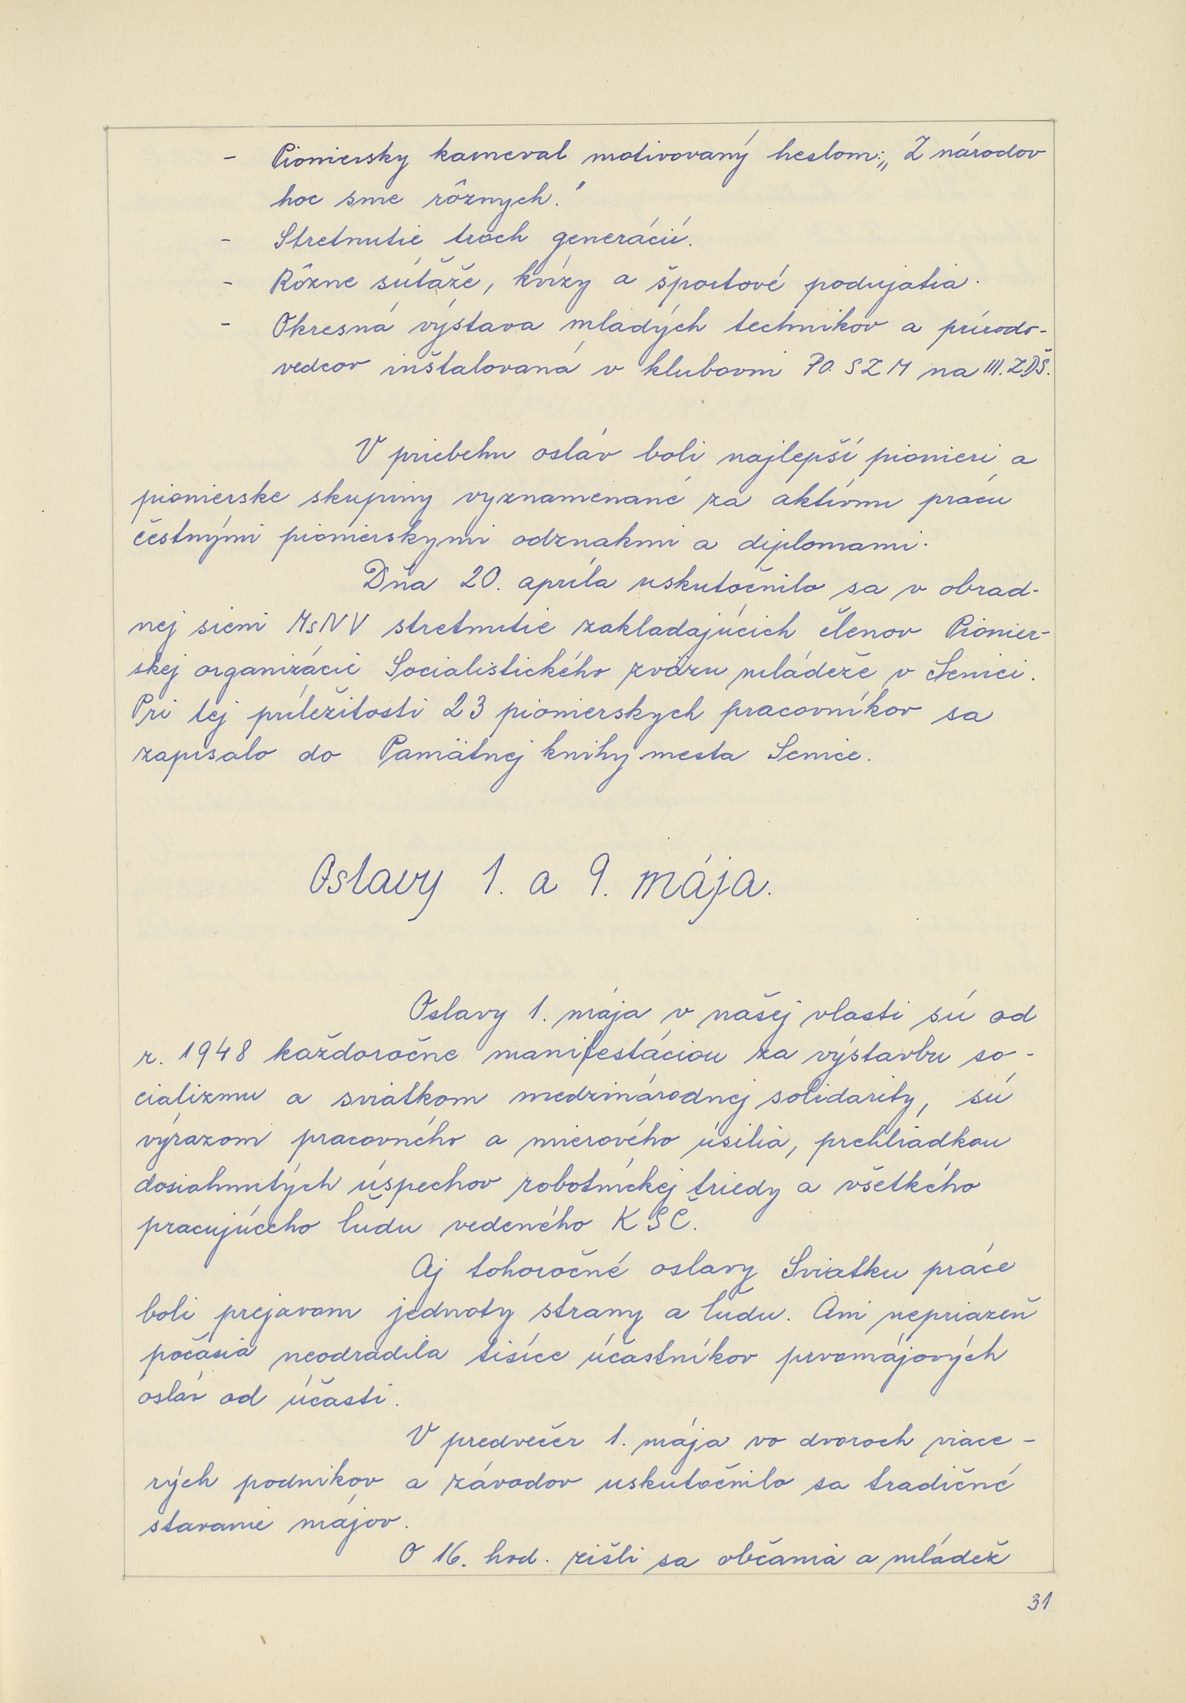 - Pioniersky karneval motivovaný heslom: „Z národov
hoc sme rôznych."
- Stretnutie troch generácií.
- Rôzne súťaže, kvízy a športové podujatia.
- Okresná výstava mladých technikov a prírodo-
vedcov inštalovaná v klubovni PO SZM na III. ZDŠ.
V priebehu osláv boli najlepší pionieri a
pionierske skupiny vyznamenané za aktívnu prácu
čestnými pionierskymi odznakmi a diplomami.
Dňa 20. apríla uskutočnilo sa v obrad-
nej sieni MsNV stretnutie zakladajúcich členov Pionier-
skej organizácie Socialistického zväzu mládeže v Senici.
Pri tej príležitosti 23 pionierskych pracovníkov sa
zapísalo do Pamätnej knihy mesta Senice.
Oslavy 1. a 9. mája.
Oslavy 1. mája v našej vlasti sú od
r. 1948 každoročne manifestáciou za výstavbu so-
cializmu a sviatkom medzinárodnej solidarity, sú
výrazom pracovného a mierového úsilia, prehliadkou
dosiahnutých úspechov robotníckej triedy a všetkého
pracujúceho ľudu vedeného KSČ.
Aj tohoročné oslavy Sviatku práce
boli prejavom jednoty strany a ľudu. Ani nepriazeň
počasia neodradila tisíce účastníkov prvomájových
osláv od účasti.
V predvečer 1. mája vo dvoroch viace-
rých podnikov a závodov uskutočnilo sa tradičné
stavanie májov.
O 16. hod. zišli sa občania a mládež
31